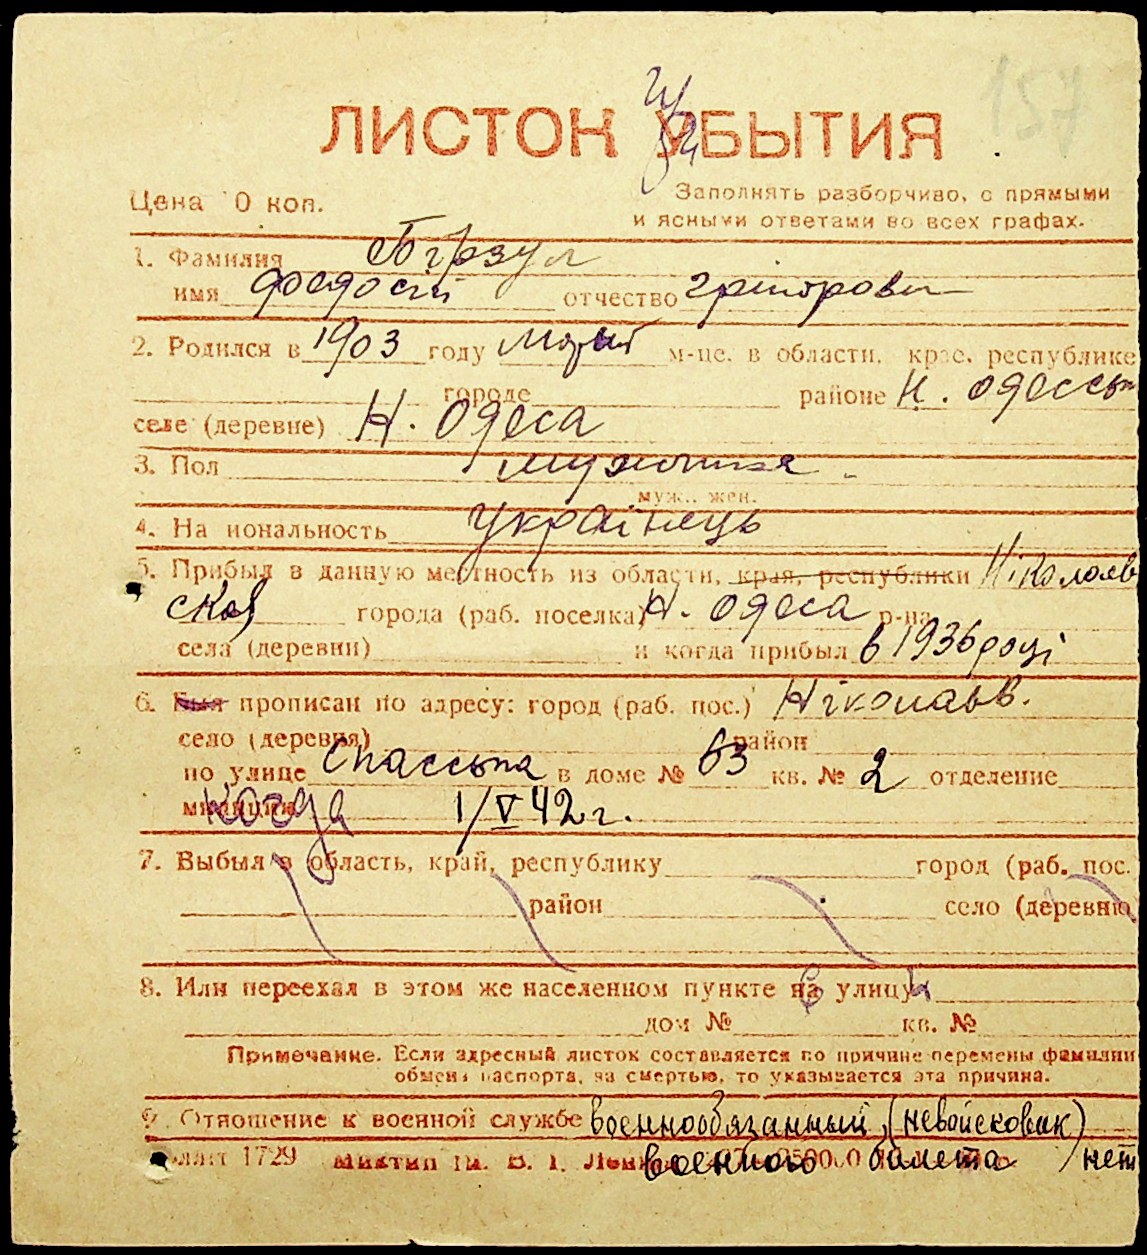 127
ЛИСТОК УБЫТИЯ
Цена 0 коп.
Заполнять разборчиво, с прямыми
и ясными ответами во всех графах.
1. Фамилия Бірзул
имя Феодосій отчество Грігорович
2. Родился в 1903 году м-це, в области, крае, республике
городе районе Н. Одесськ
селе (деревне) Н. Одеса
3. Пол мужчина
муж., жен.
4. На иональность українець
5. Прибыл в данную местность из области, края, республики Ніколаев
ской города (раб. поселка) Н. Одеса р-на
села (деревни) и когда прибыл в 1936 році
6. Был прописан по адресу: город (раб. пос.) Ніколаїв.
село (деревня) район
по улице Спасська в доме № 63 кв. № 2 отделение
милиции когда 1/V 42 г.
7. Выбыл в область, край, республику город (раб. пос.
район село (деревню
8. Или переехал в этом же населенном пункте на улицу
дом № кв. №
Примечание. Если адресный листок составляется по причине перемены фамилии
обмена паспорта, за смертью, то указывается эта причина.
9. Отношение к военной службе военнообязанный, (невойсковик)
1729 военного билета нет